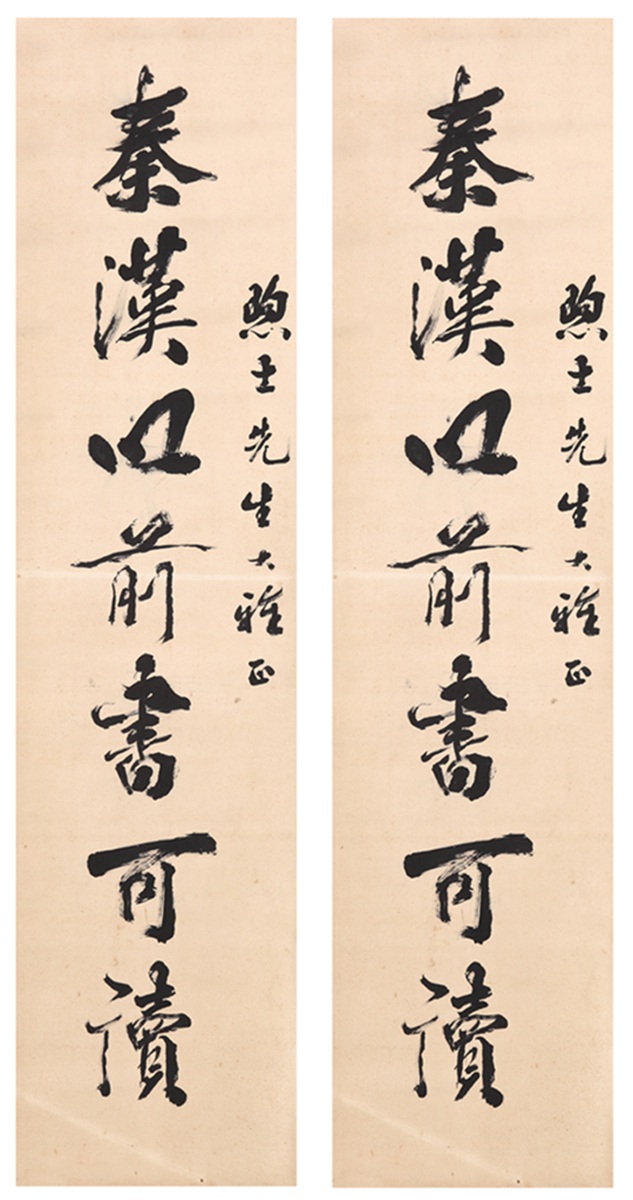 士先生大雅正
秦漢以前書可讀
士先生大雅正
秦漢以前書可讀